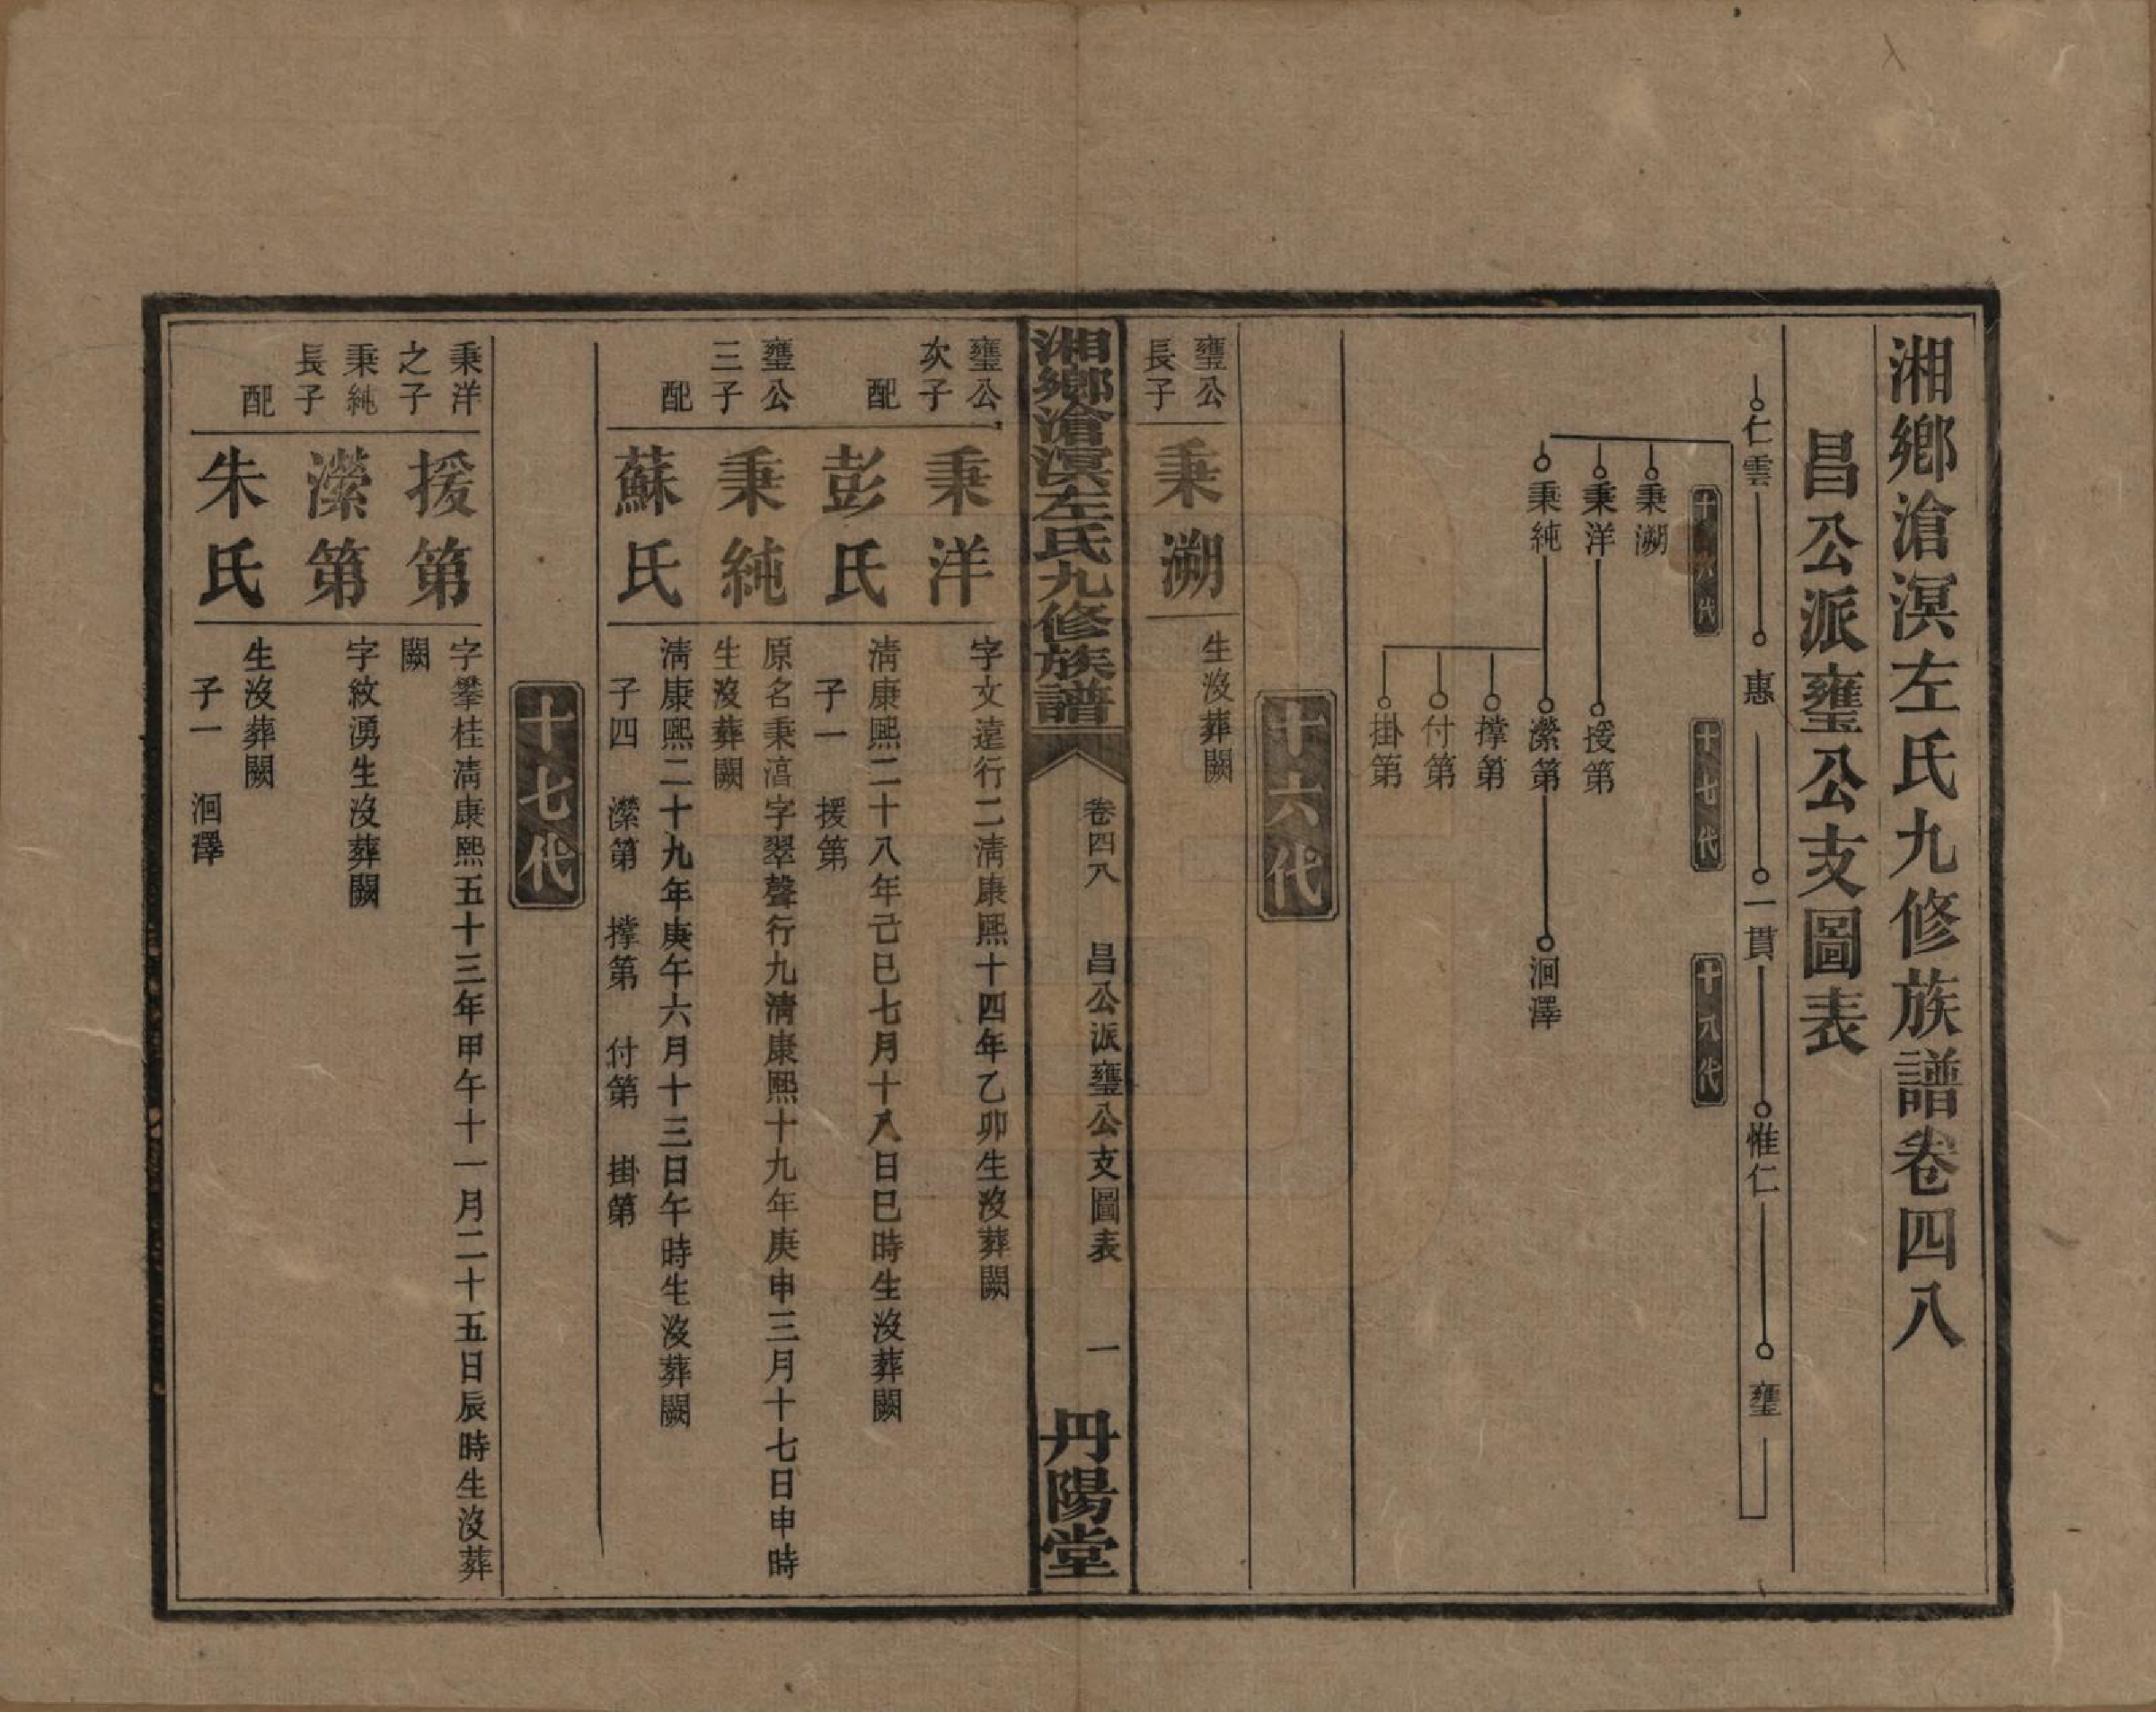 湘鄉滄溟左氏九修族譜卷四八
昌公派壅公支圖表
仁雲 惠 一貫 惟仁 壅
十六代 十七代 十八代
秉溯
秉洋 援第
秉純 濴第 洄澤
撐第
付第
掛第
十六代
壅公長子 秉溯 生沒葬闕
湘鄉滄溟左氏九修族譜 卷四八 昌公派壅公支圖表 一 丹陽堂
壅公次子 秉洋 字文遠行二清康熙十四年乙卯生沒葬闕
配 彭氏 清康熙二十八年己巳七月十八日巳時生沒葬闕
子一 援第
壅公三子 秉純 原名秉湻字翠聲行九清康熙十九年庚申三月十七日申時
生沒葬闕
配 蘇氏 清康熙二十九年庚午六月十三日午時生沒葬闕
子四 濴第 撐第 付第 掛第
十七代
秉洋之子 援第 字攀桂清康熙五十三年甲午十一月二十五日辰時生沒葬
闕
秉純長子 濴第 字紋湧生沒葬闕
配 朱氏 生沒葬闕
子一 洄澤